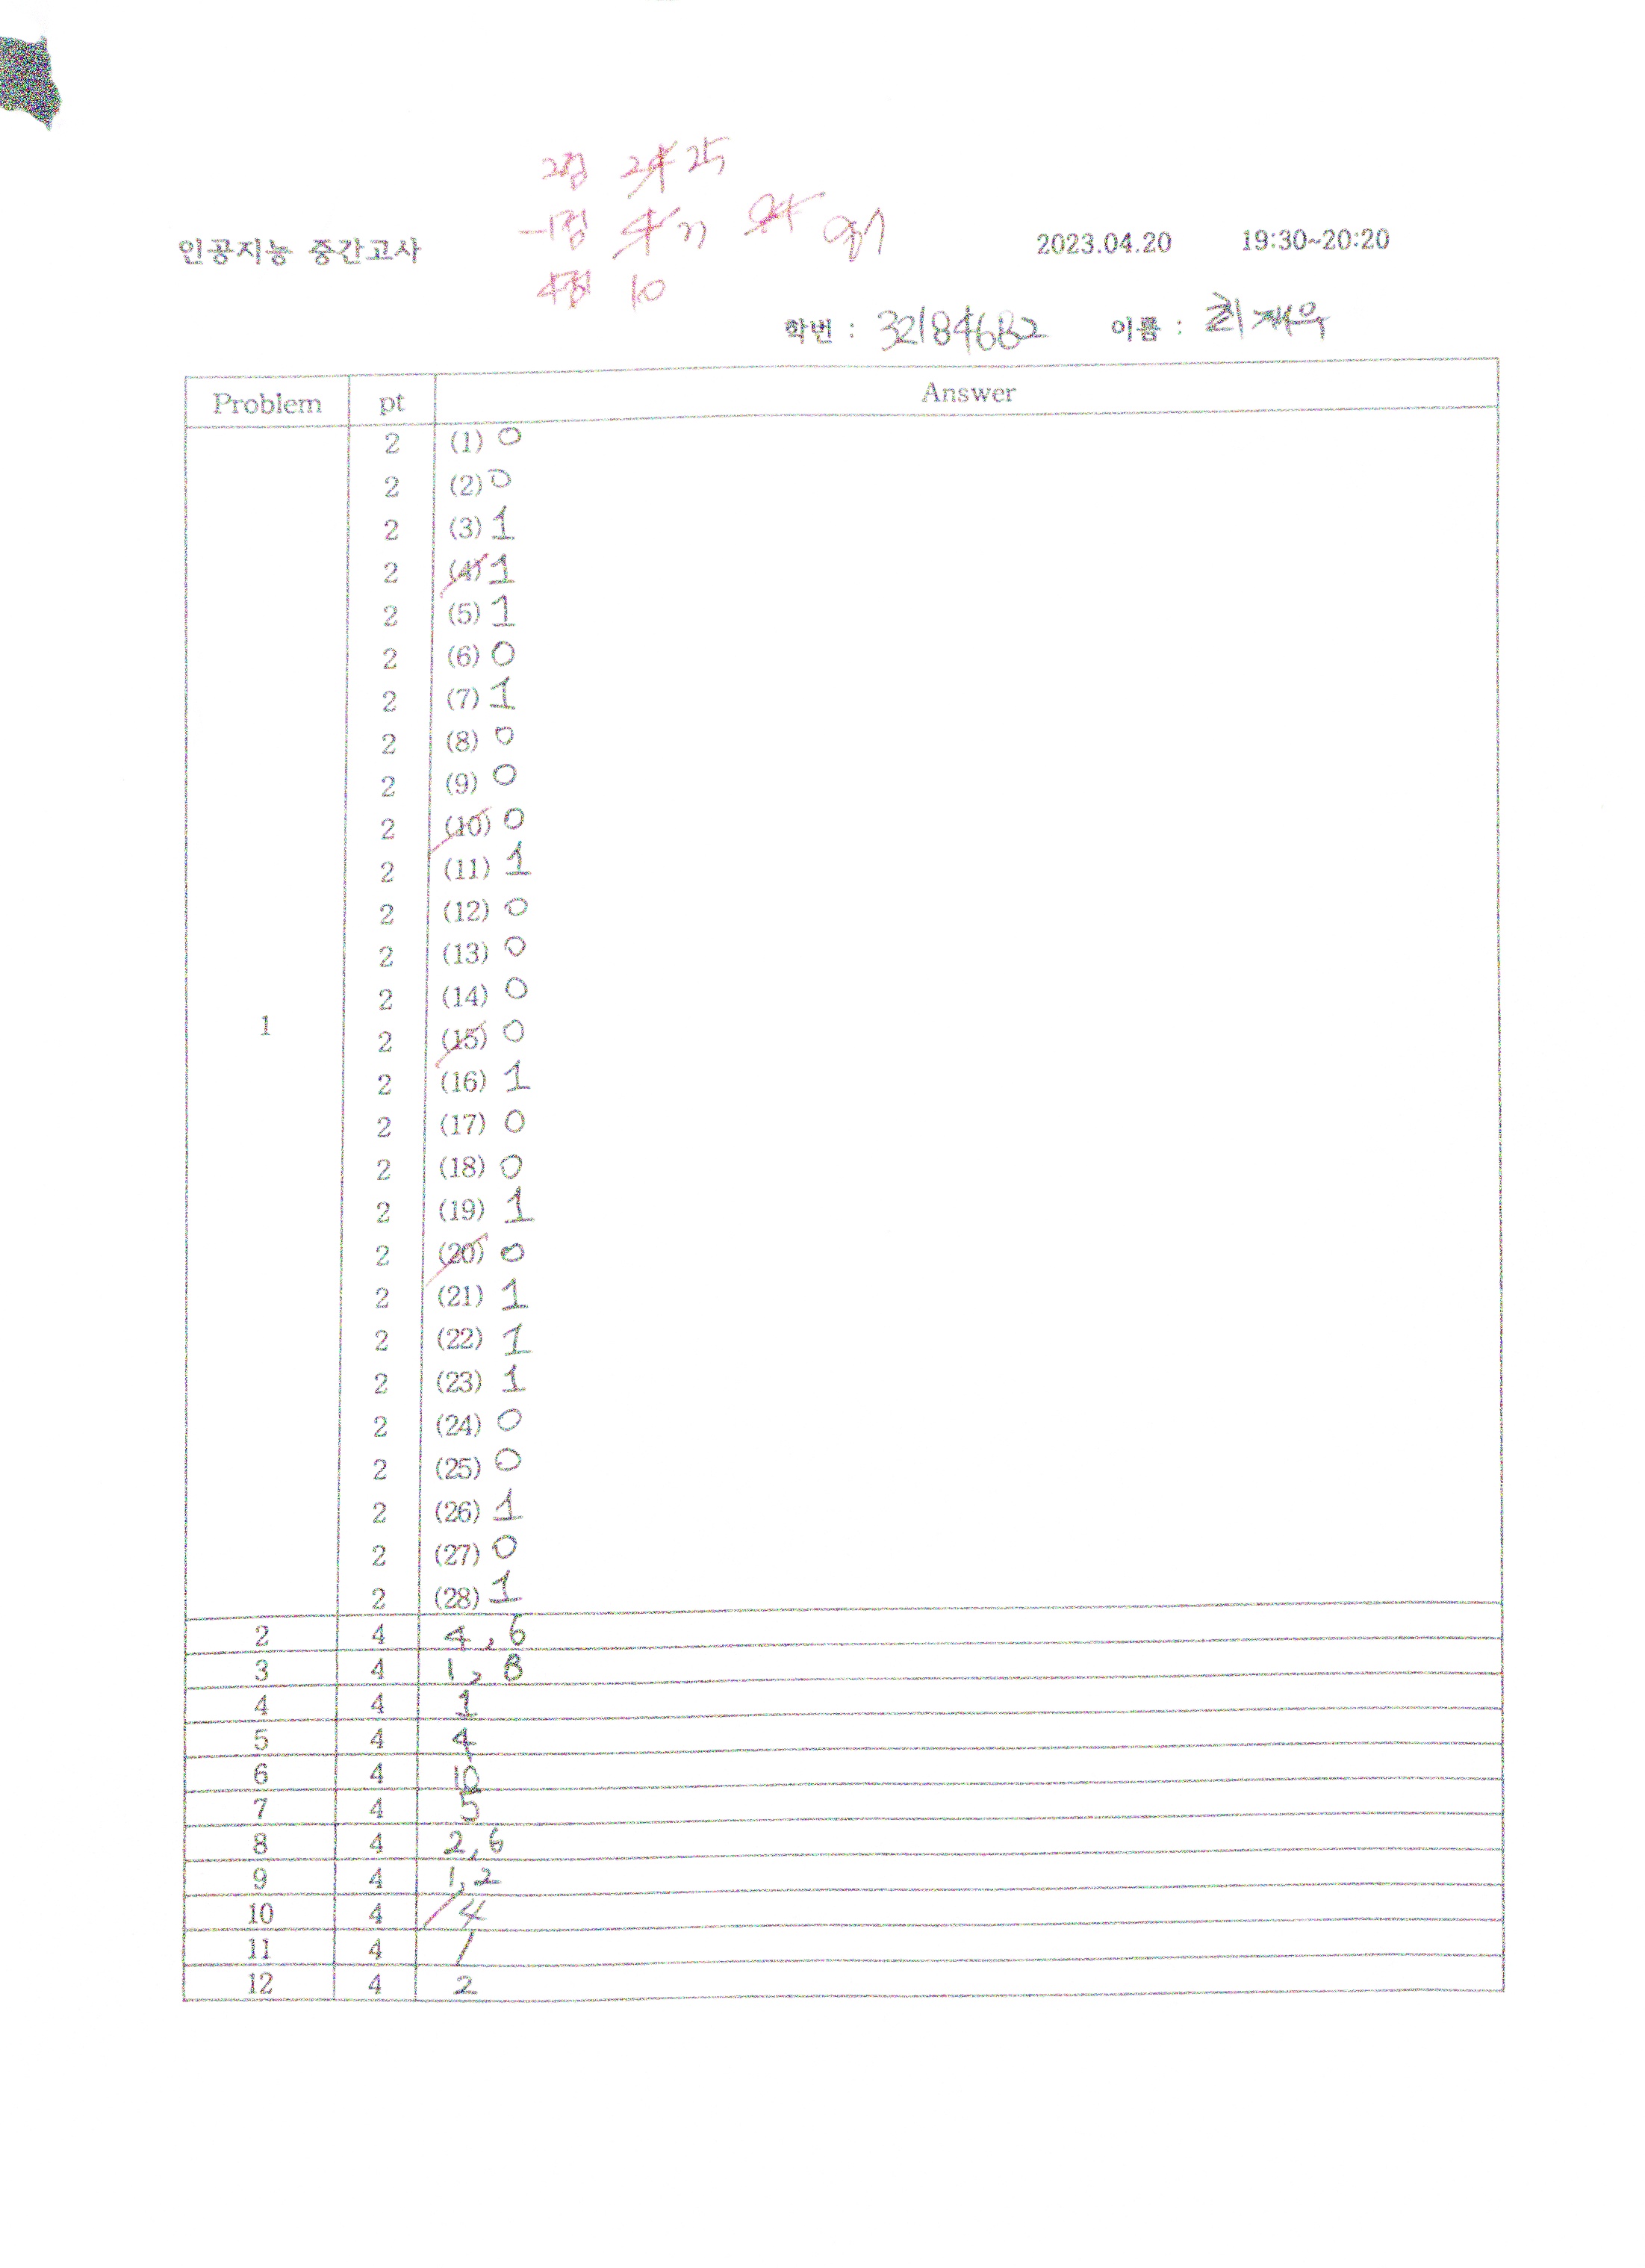 2점 24 25
인공지능 중간고사
-1점 4 84
2023.04.20 19:30~20:20
4점 10
학번 : 32184682 이름 : 최재우
Problem pt Answer
2 (1) 0
2 (2) 0
2 (3) 1
2 (4) 1
2 (5) 1
2 (6) 0
2 (7) 1
2 (8) 0
2 (9) 0
2 (10) 0
2 (11) 1
2 (12) 0
2 (13) 0
2 (14) 0
1 2 (15) 0
2 (16) 1
2 (17) 0
2 (18) 0
2 (19) 1
2 (20) 0
2 (21) 1
2 (22) 1
2 (23) 1
2 (24) 0
2 (25) 0
2 (26) 1
2 (27) 0
2 (28) 1
2 4 4, 6
3 4 1, 8
4 4 1
5 4 4
6 4 10
7 4 5
8 4 2, 6
9 4 1, 2
10 4 4
11 4 1
12 4 2